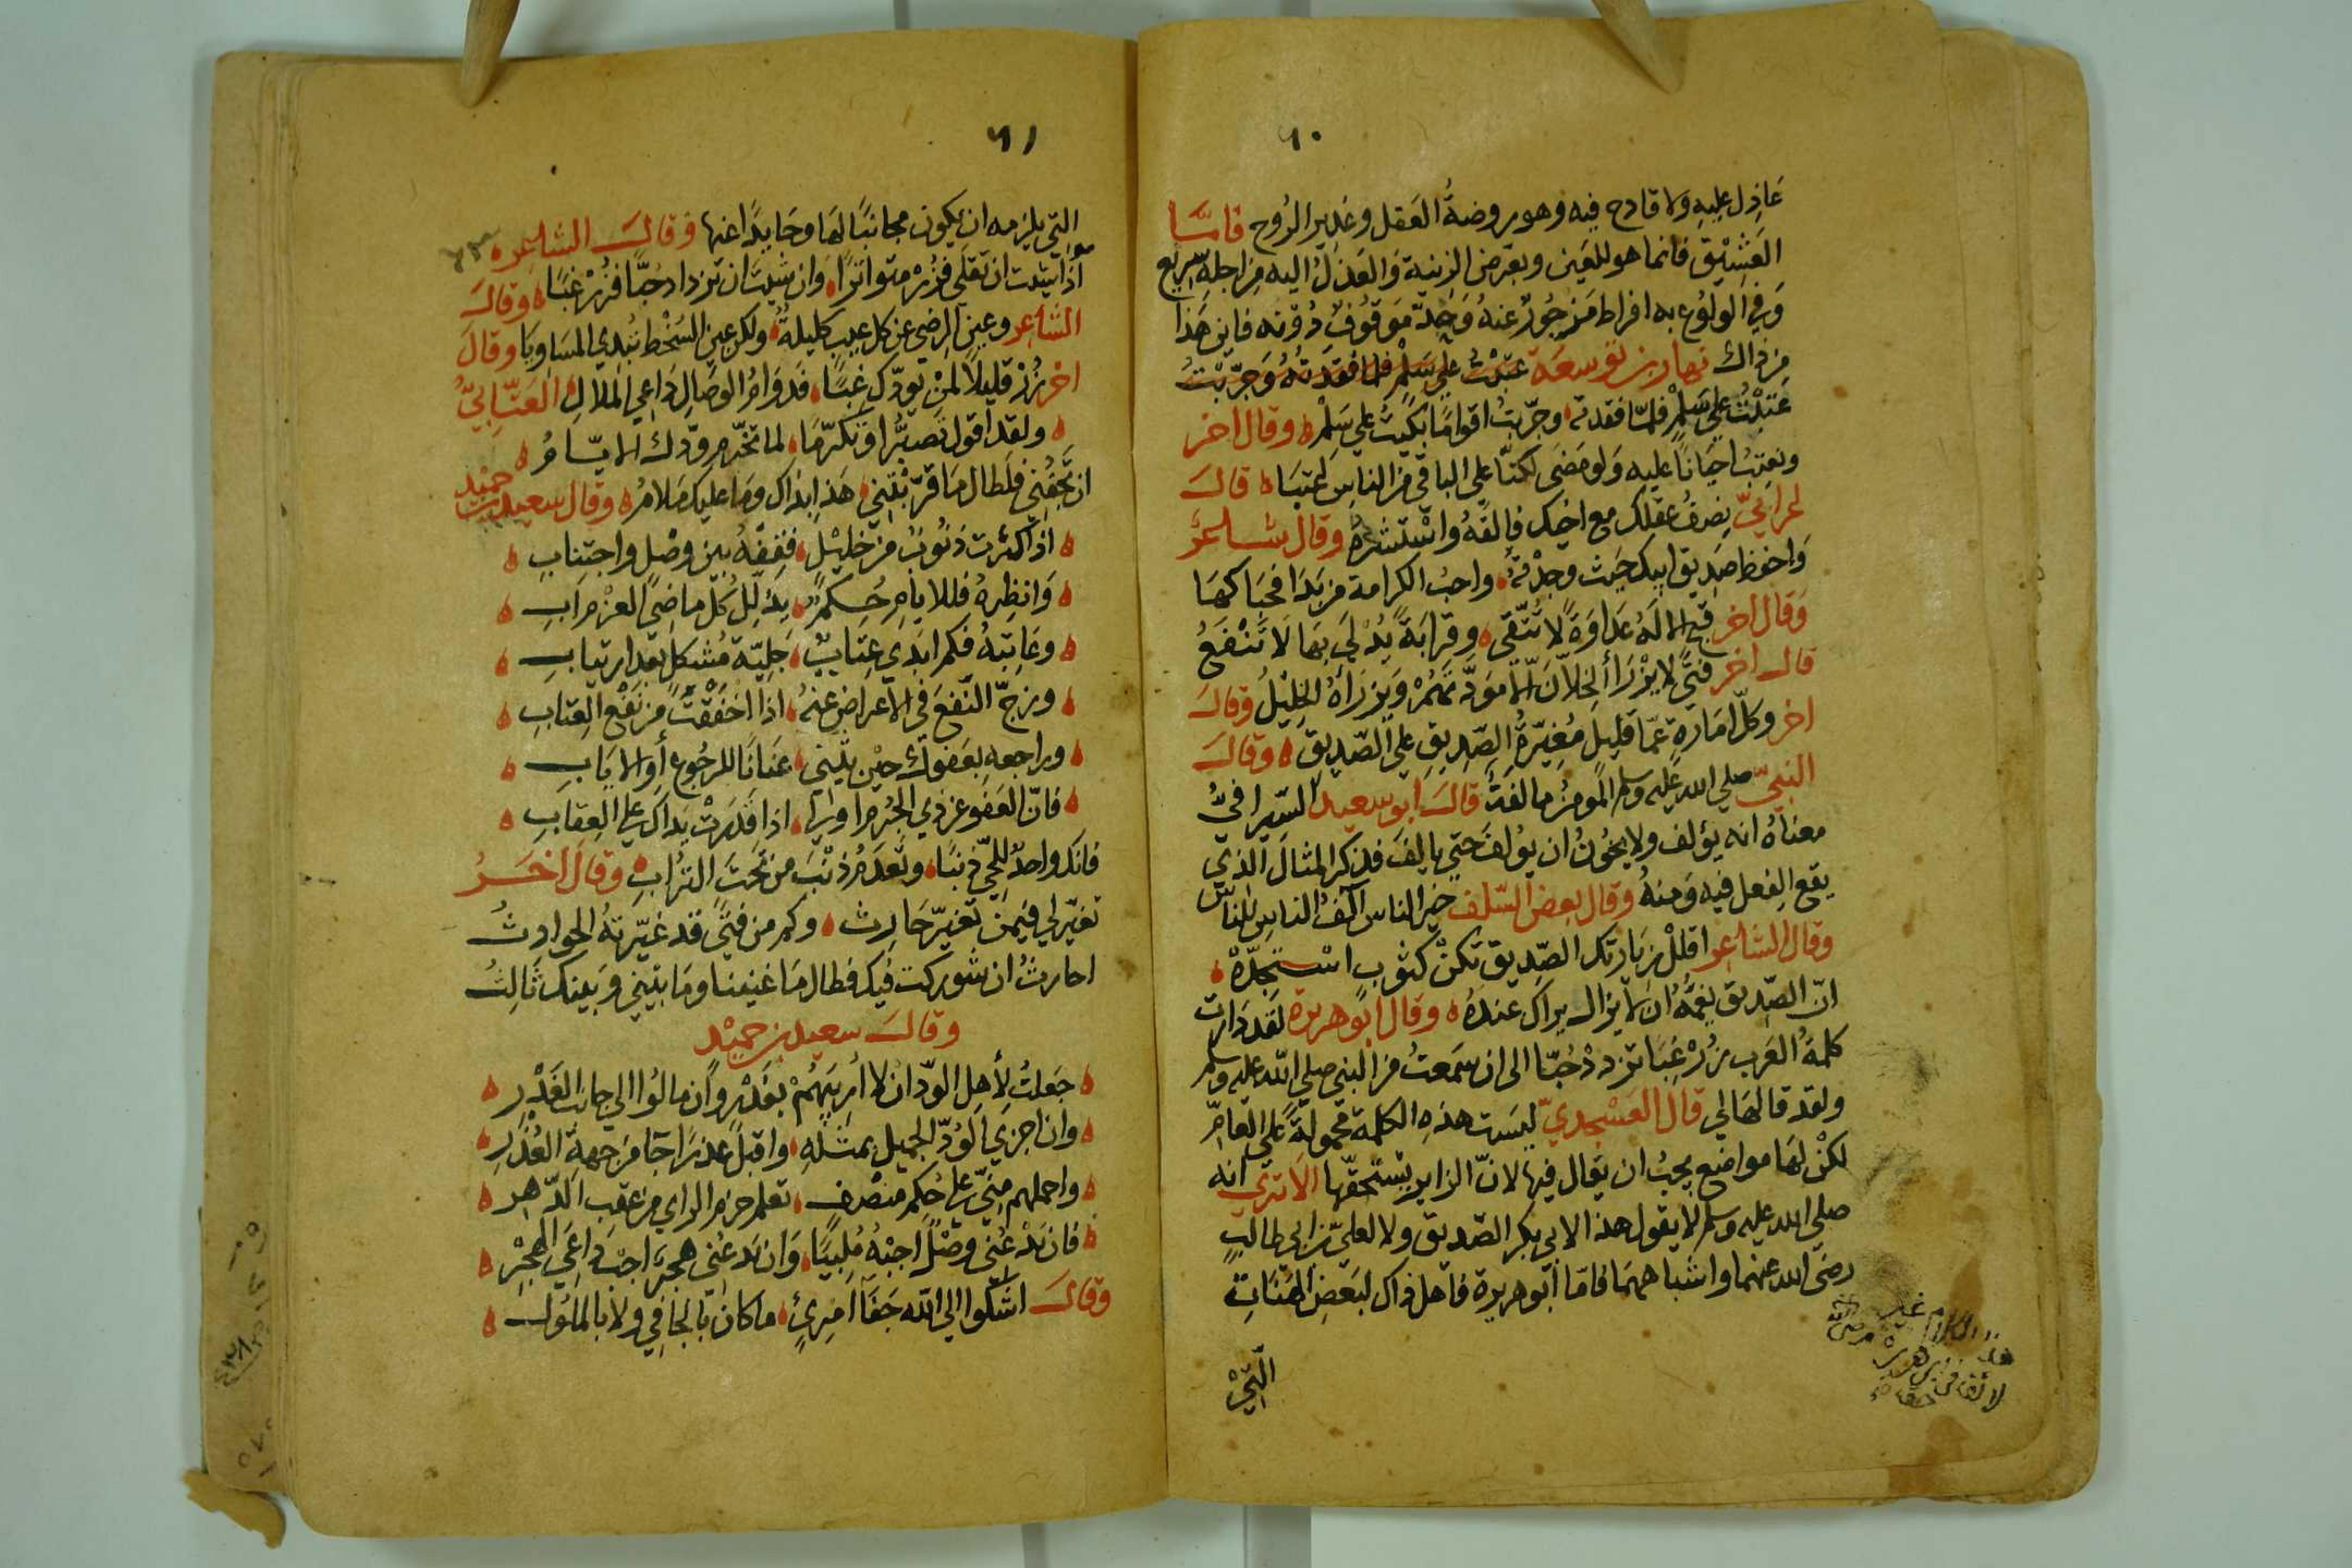 ٦٠
عَاذِل عليه ولا قادح فيه وهو روضةُ العَقل وغدير الرُّوح فامَّا
العَشِيْق فانما هو للعَين وبعرض الريبة والعَذلُ اليه من اجله سَريع
وَفي الولوُع به افراط مَزجُورٌ عنهُ وَحِدةٌ مَوقُوفٌ دُونه فاين هَذا
من ذاك نهار بن توسعَة عَتَبْتُ علي سَلْمٍ فلما فقدَتهُ وَجَرّبْتُ
عَتَبْتُ علي سَلمٍ فلمّا فقدته وجرّبت اقوامًا بكيتُ علي سَلْمٍ وقال اخر
ونعتِبُ احيَانًا عليه وَلو مَضَى لكنّا على الباقي من الناسِ اعتبَا قالَ
اعرابيّ نصرفُ عَقلك مع اخيك فالقَهُ وَاسْتَشرهُ وقال شاعرٌ
وَاحفظ صَديق ابيك حَيث وجدْتَهُ واحبُ الكرامة من بَدَا فحَباكهَا
وَقال اخر قبح الالهُ عداوَةً لا تُتّقى وقرابَةً يُدْلَي بِهَا لا تَنْفَعُ
قال اخر فتًى لا يَرْزَأُ الخِلاّنَ الّا مَوَدّتَهُمْ وَيَرزَأهُ الخلِيْلُ وَقالَ
اخر وكلّ امَارةٍ عَمّا قليلٍ مُغيّرةُ الصَّدِيقِ علي الصّديقِ وقالَ
النبيّ صلي الله عليه وسلم المومن مالفَةٌ قالَ ابو سعيد السّيرافيُّ
معناهُ انه يؤلف ولا يجُوزُ ان يؤلفَ حَتى يالفَ فذكر المثالَ الذي
يقع الفعل فيه وَمنهُ وقال بعض السّلف خير الناس آلفُ الناسِ للناسِ
وقال الشاعر اقللْ زيارتك الصّديق تكنْ كثوب اسْتَجَدَّهْ
انّ الصّديق يغمُّهُ ان لا يزال يراك عندَهُ وقال ابو هريرة لقَد دَارت
كلمةُ العَرب زُرْ غِبًّا تزدد حُبًّا الى ان سَمعتُ من النبي صلي الله عليه وسلم
ولقد قالهَا لي قال العَسْجدي ليسَت هذه الكلمة محمولةً علي العامِّ
لكنْ لهَا مواضع يجبُ ان يقال فيها لانّ الزاير يستحقّها الا تري انه
صلي الله عليه وسلم لا يقول هذا لابي بكر الصّديق ولا لعليّ بن ابي طالبٍ
رضي الله عنهما واشباههمَا فامّا ابو هريرة فاهل ذاك لبَعضِ الهنَاتِ
هذا الكلام غير
لائق
التِّي
٦١
التِّي يلزمه ان يكون مجانبًا لهَا وحَايدًا عنها وقالَ الشاعر
اذا شئت ان تقلَى فزُرْ متواترًا وان شيْتَ ان تزدادَ حُبًّا فزُرْ غبًّا وقالَ
الشاعر وعين الرضي عن كل عيب كليلةٌ ولكن عين السّخْط تبْدي المسَاويَا وقالَ
اخر زُرْ قليلاً لمنْ يودّك غِبًّا فدَوَامُ الوصَالِ دَاعِي المَلالِ العَتّابيُّ
ولقد اقول تَصبُّرًا وَتكرّمَا لما تخَرّم ودّك الايّامُ
ان تَجْفُنِي فلطال مَا قرّبْتَني هَذا بذاك ومَا عليك مَلامُ وقال سعيد بن حميد
اذا كثرت ذنُوبٌ من خليلٍ فقِفْهُ بين وصْلٍ واجتنابِ
وَانظِرهُ فللايامِ حُكمٌ يذَلّلُ كلّ ماضِي العَزْمِ ابِ
وعَاتبْهُ فكم ابدَي عِتَابٌ جَليّة مُشكل بعد ارتيابِ
ورَجّ النّفعَ في الاعراض عنهُ اذا اخفَقْتَ من نَفْع العِتابِ
وراجعه بعَفوك حيْن يثني عنانًا للرجُوع او الايَابِ
فانّ العَفو عن ذي الجُرم اولي اذا قدَرتْ يدَاك علي العِقابِ
فانك واحدٌ للحيّ ذنبًا وتعدَمُ ذنْبَ من تحتَ الترُابِ وقالَ اخرُ
تغيّر لي فيمن تغيّر حَارثٌ وكم من فتًى قد غيّرتهُ الحوادثُ
احارثُ ان شوركت فيك فطال مَا غنينا ومَا بيْني وَبينك ثَالثُ
وقالَ سعيد بن حميْد
جَعلتُ لأهل الودّ ان لا أريبَهُمْ بغَدْرٍ وان مالوُا الي جانبِ الغَدْرِ
وان اجزيَ الوُدّ الجميل بمثلهِ واقبلَ عذرًا جَا من جهةِ العُذْرِ
واحملهم منّي علي حُكم منصف تعلم حزم الراي من عقب الدّهر
فان تدْعُني وصْلاً اجبْهُ مُلبيًا وَان تدعُني هجرٌ اجبْ دَاعيَ الهجْرِ
وقالَ اشكوا الي الله جَفَا امرئٍ ما كان بالجافي ولا بالملُولِ